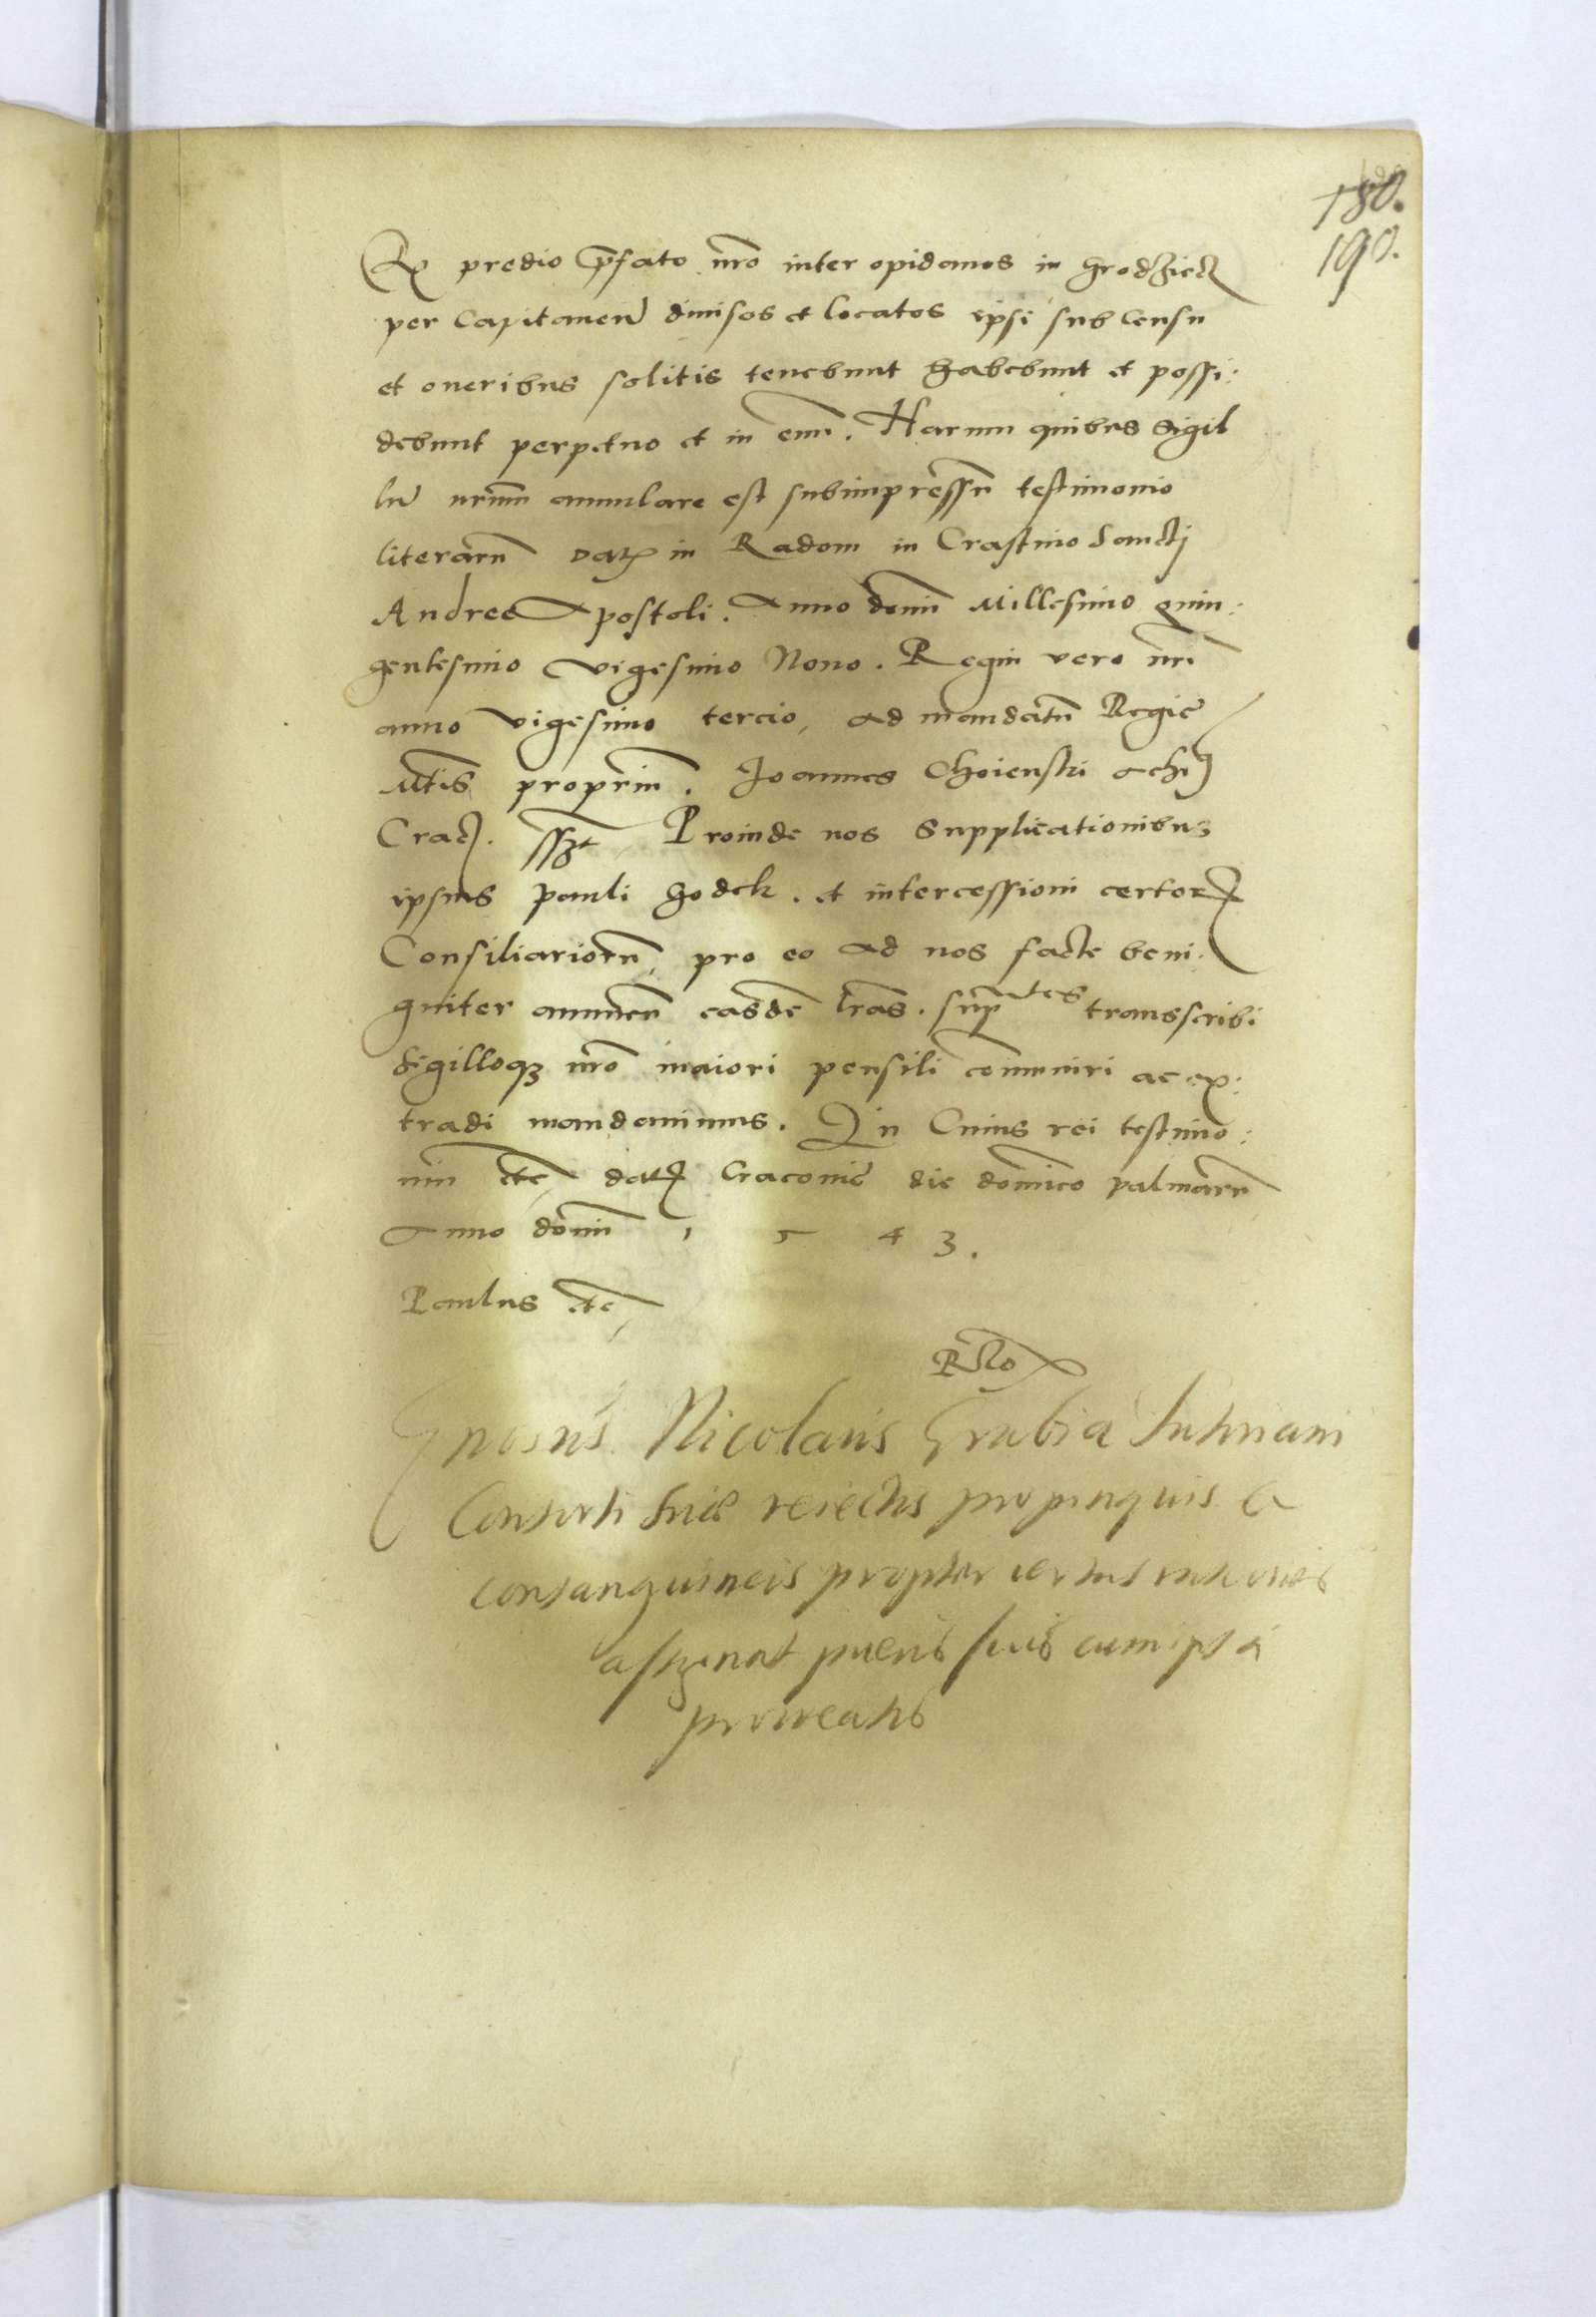 180.
190.
Ex predio p̄fato n̄ro inter opidanos in Grodziecz
per Capitaneū diuisos et locatos ipsi sub censu
et oneribus solitis tenebunt habebunt et possi:
debunt perpetuo et in euū. Harum quibus Sigil
lū nrūm annulare est subimpressū testimonio
literarū Datꝭ in Radom in Crastino Sancti
Andree Apostoli. Anno domī Millesimo quin:
gentesimo vigesimo Nono. Regni vero nrī
anno vigesimo tercio, ad mandatū Regie
Mtīs propriū. Joannes Choienski Achiꝫ
Crac. sszt Proinde nos Supplicationibus
ipsius pauli hodek. et intercessioni certorꝝ
Consiliariorū, pro eo ad nos facte beni:
gniter annuen̄ easdē lrās. sup̄tes transscribi
Sigilloqꝫ nrō maiori pensili cōmuniri ac ex:
tradi mandauimus. In Cuius rei testimo:
niū etc̄, datꝭ Cracouie die dominico palmarū
Anno domī 1 5 4 3.
Paulus etc̄,
Rlō
Gnosus Nicolaus Grabia
Consorti suæ reiectis propinquis &
consanguineis propter certas rationes
assignat pueris suis cum ipsa
procreatis